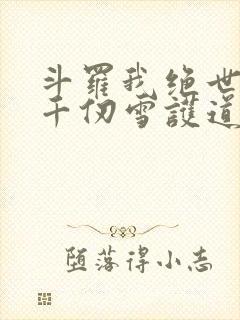 斗羅我绝世
千仞雪護道
堕落得小志